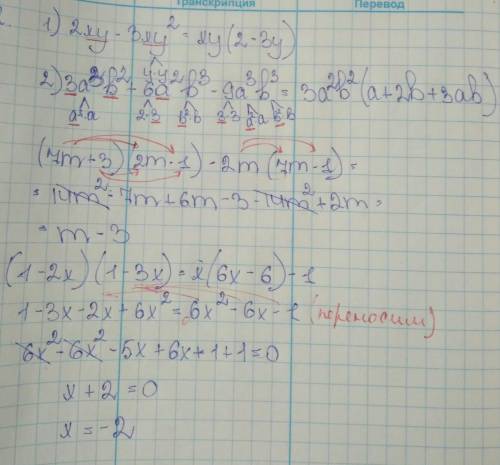 Транскрипция Перевод
1) 2xy - 3xy² = xy(2-3y)
y·y
2) 3a³b² + 6a²b³ - 9a³b³ = 3a²b²(a+2b+3ab)
a²·a 2·3 b²·b 3·3 a²·a b²·b
(7m+3)(2m-1) - 2m(7m-1) =
= 14m² - 7m + 6m - 3 - 14m² + 2m =
= m - 3
(1-2x)(1-3x) = x(6x-6) - 1
1-3x-2x+6x² = 6x²-6x-1 (переносим)
6x² - 6x² - 5x + 6x + 1 + 1 = 0
x + 2 = 0
x = -2